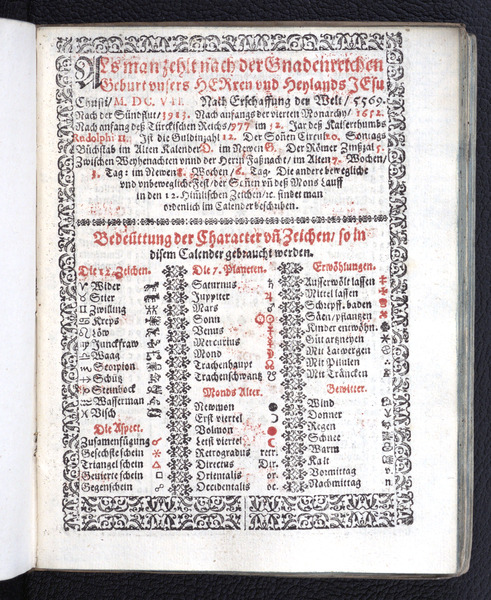 Als man zehlt nach der Gnadenreichen
Geburt vnsers HERren vnd Heylands JEsu
Christi/ M. DC. VII. Nach Erschaffung der Welt/ 5569.
Nach der Sündflut/ 3913. Nach anfangs der vierten Monarchy/ 1652.
Nach anfang deß Türckischen Reichs/ 977 im 32. Jar deß Kaiserthumbs
Rudolphi II. Ist die Guldinzahl 12. Der Soñen Circul 20. Sontags
Büchstab im Alten Kalender D. im Newen G. Der Römer Zinßzal 5.
Zwischen Weyhenachten vnnd der Herrn Faßnacht/ im Alten 7. Wochen/
3. Tag: im Newen 8. Wochen/ 6. Tag. Die andere bewegliche
vnd vnbewegliche Fest/ der Soñen vñ deß Mons Lauff
in den 12. Himlischen Zeichen/ ꝛc. findet man
ordenlich im Calender beschriben.
Bedeüttung der Character vñ Zeichen/ so in
disem Calender gebraucht werden.
Die 12. Zeichen.
♈ Wider
♉ Stier
♊ Zwilling
♋ Kreps
♌ Löw
♍ Junckfraw
♎ Waag
♏ Scorpion
♐ Schütz
♑ Steinbock
♒ Wasserman
♓ Visch
Die Aspect.
Zusamenfügung ☌
Gesechste schein ⚹
Triangel schein △
Gevierte schein □
Gegenschein ☍
Die 7. Planeten.
Saturnus ♄
Juppiter ♃
Mars ♂
Sonn ☉
Venus ♀
Mercurius ☿
Mond ☾
Trachenhaupt ☊
Trachenschwantz ☋
Monds Alter.
Newmon ●
Erst viertel ☽
Volmon ●
Letst viertel ☾
Retrogradus retr.
Directus Dir.
Orientalis or.
Occidentalis oc.
Erwöhlungen.
Ausserwölt lassen
Mittel lassen
Schrepff. baden
Säen/ pflantzen
Kinder entwöhn.
Gut artzneyen
Mit Latwergen
Mit Pilulen
Mit Träncken
Gewitter.
Wind
Donner
Regen
Schnee
Warm
Kalt
Vormittag v.
Nachmittag n.